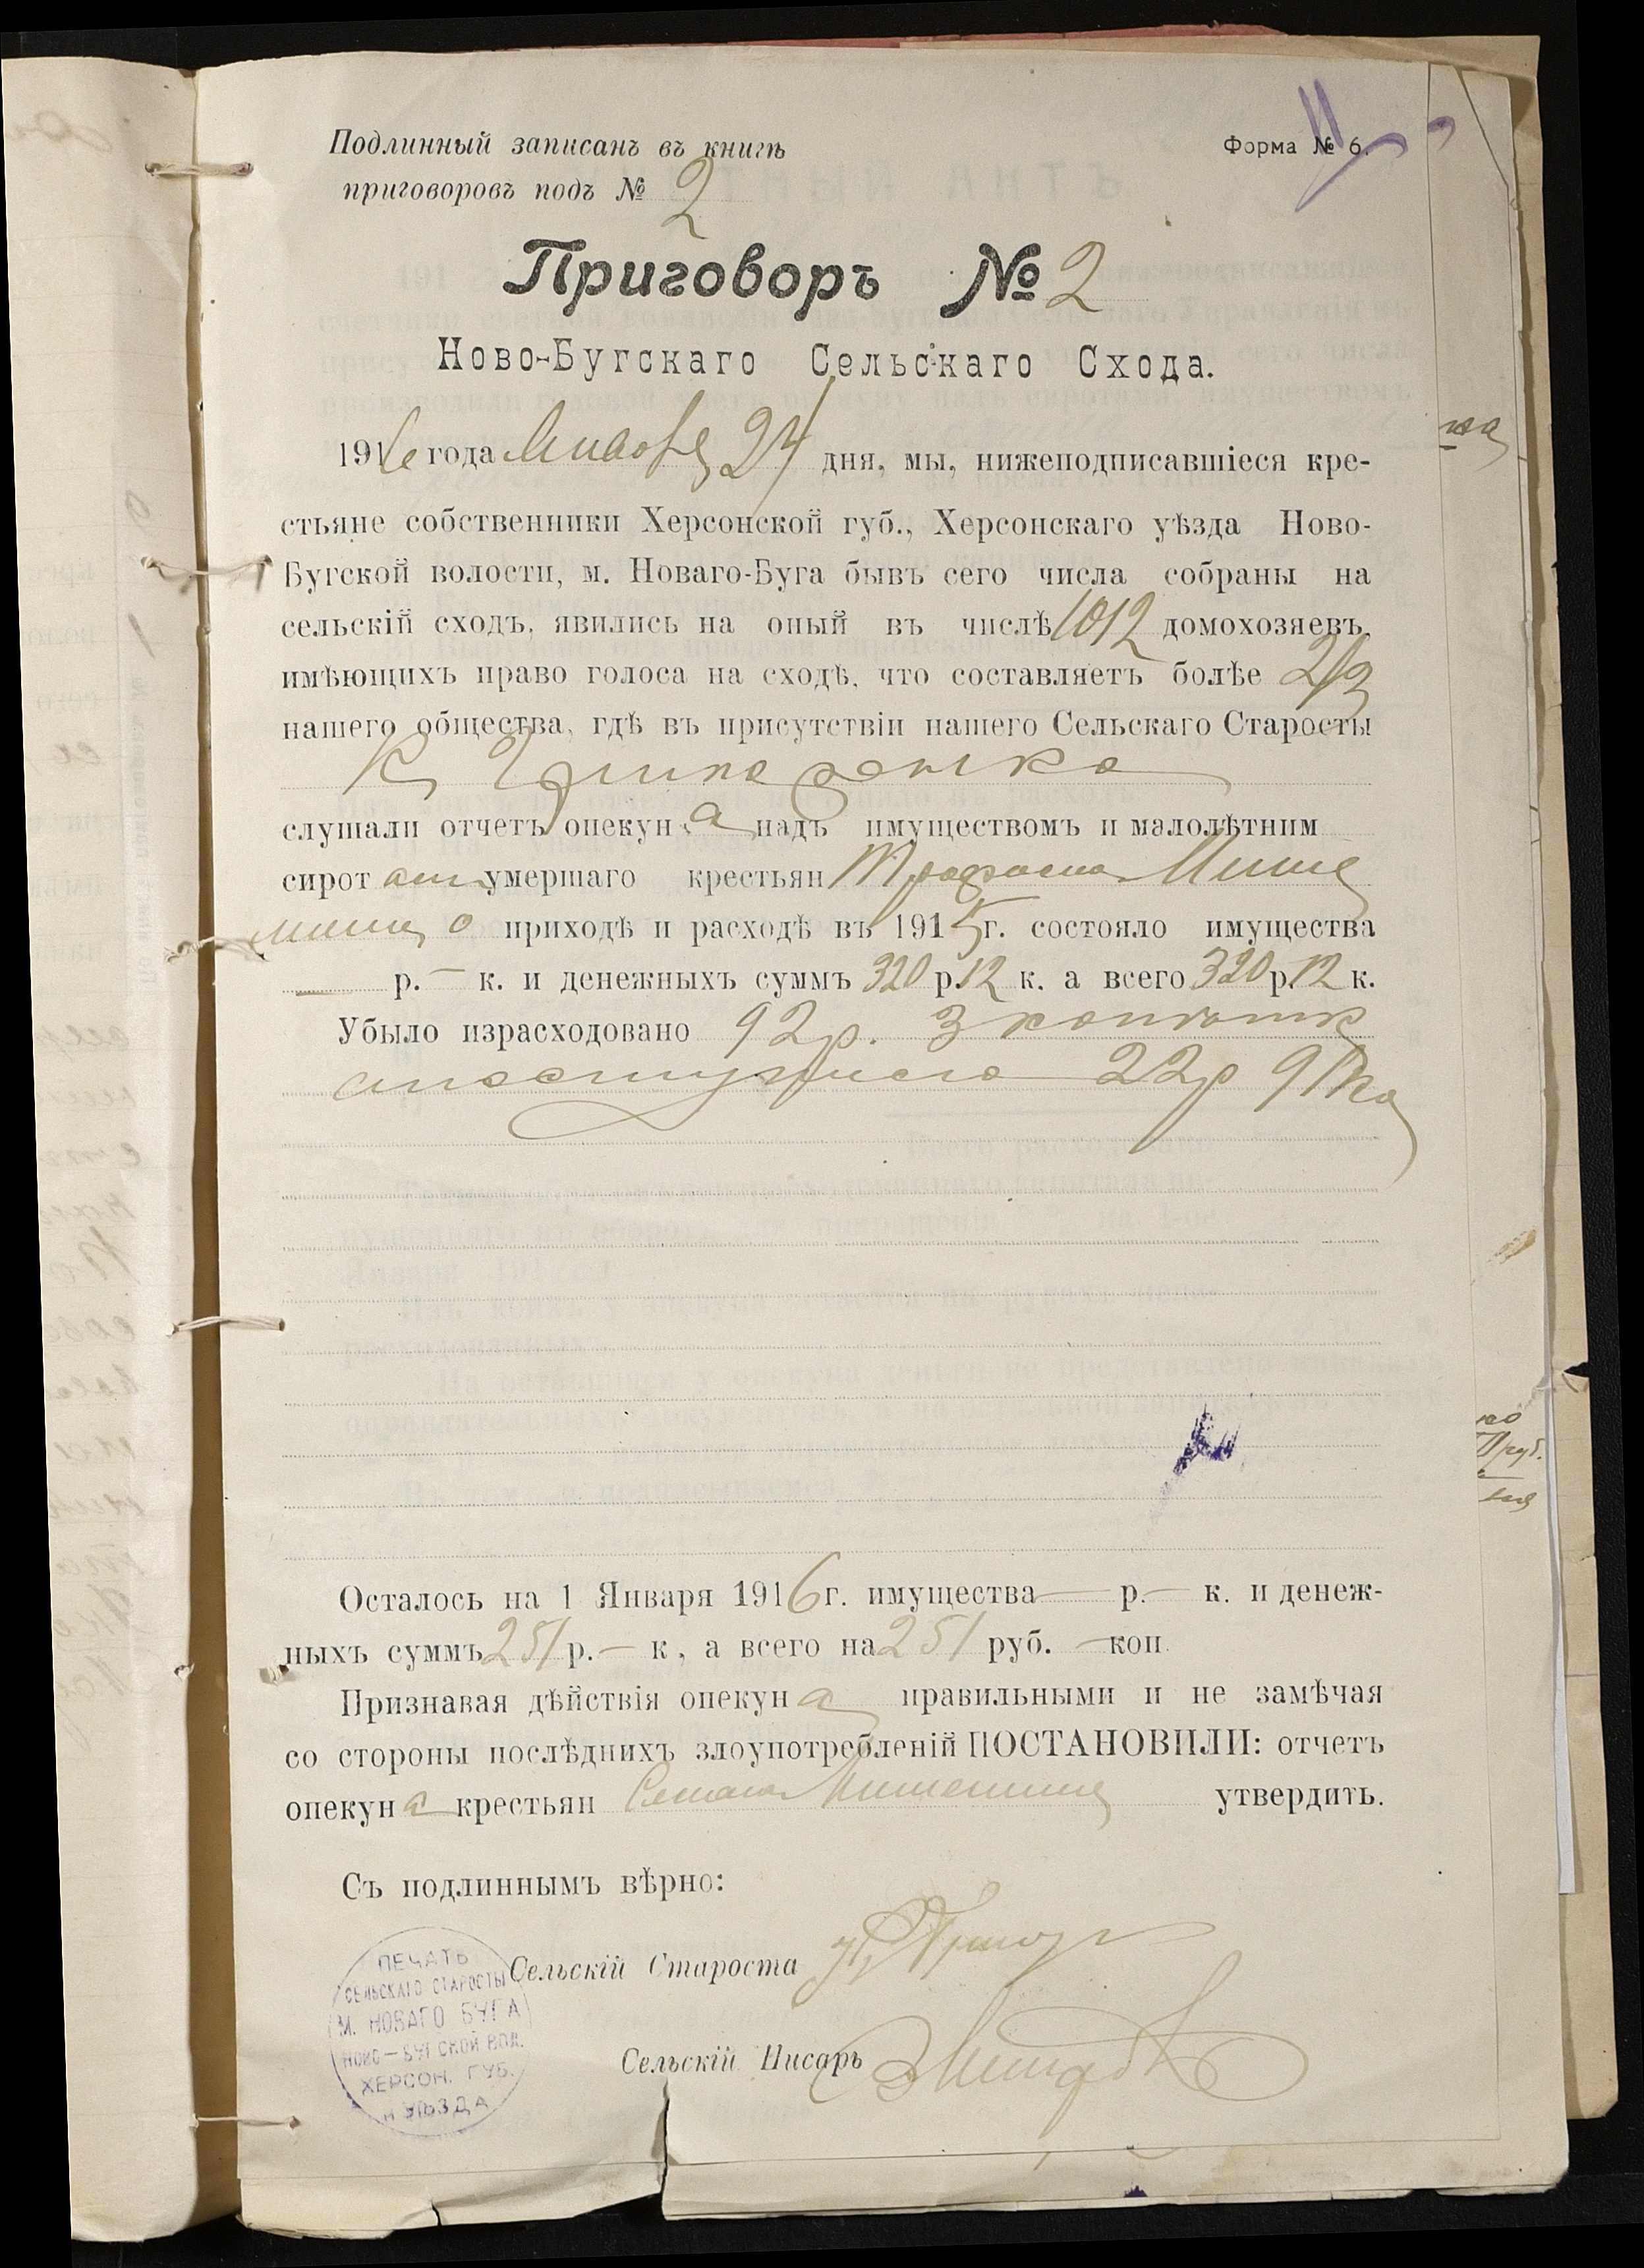 Подлинный записанъ въ книгѣ
Форма № 6.
приговоровъ подъ № 2
Приговоръ № 2
Ново-Бугскаго Сельскаго Схода.
1916 года Января 24 дня, мы, нижеподписавшіеся кре-
стьяне собственники Херсонской губ., Херсонскаго уѣзда Ново-
Бугской волости, м. Новаго-Буга бывъ сего числа собраны на
сельскій сходъ, явились на оный въ числѣ 1012 домохозяевъ,
имѣющихъ право голоса на сходѣ, что составляетъ болѣе 2/3
нашего общества, гдѣ въ присутствіи нашего Сельскаго Старосты
слушали отчетъ опекуна надъ имуществомъ и малолѣтним
сирот умершаго крестьян Трофима Мише
нина о приходѣ и расходѣ въ 1915 г. состояло имущества
— р. — к. и денежныхъ суммъ 320 р. 12 к. а всего 320 р. 12 к.
Убыло израсходовано 92 р. 3 копѣйк
22 р 91 ко
Осталось на 1 Января 1916 г. имущества — р. — к. и денеж-
ныхъ суммъ 251 р. — к, а всего на 251 руб. — коп.
Признавая дѣйствія опекуна правильными и не замѣчая
со стороны послѣднихъ злоупотребленій ПОСТАНОВИЛИ: отчетъ
опекуна крестьян Семена Мишенина утвердить.
Съ подлиннымъ вѣрно:
Сельскій Староста
Сельскій Писарь
ПЕЧАТЬ
СЕЛЬСКАГО СТАРОСТЫ
М. НОВАГО БУГА
НОВО-БУГСКОЙ ВОЛ.
ХЕРСОН. ГУБ.
И УѢЗДА